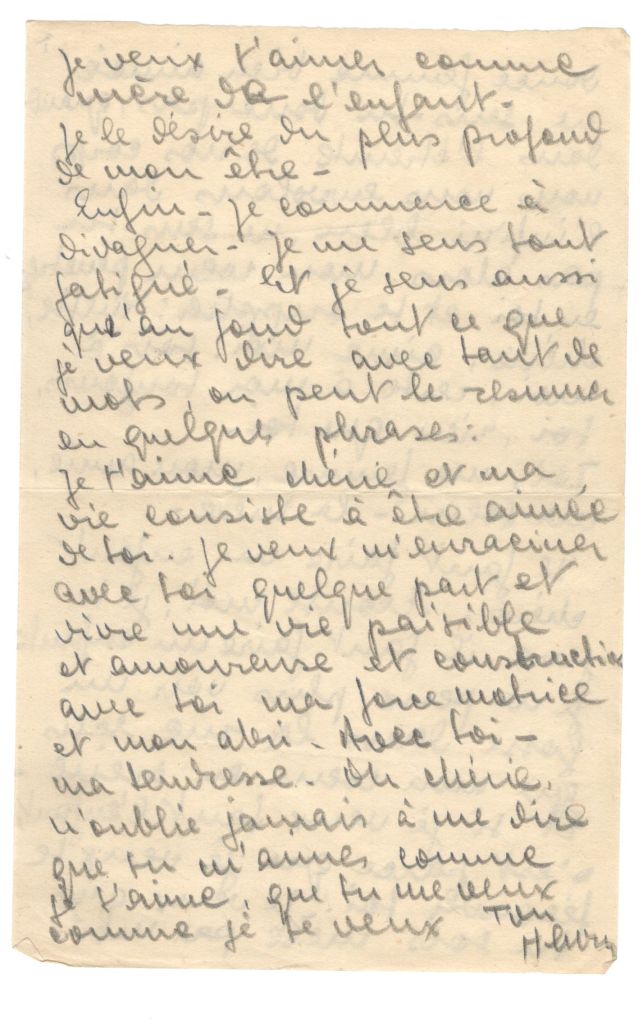 je veux t'aimer comme
mère de l'enfant -
je le désire du plus profond
de mon être -
Enfin - je commence à
divaguer - je me sens tout
fatigué - et je sens aussi
qu'au fond tout ce que
je veux dire avec tant de
mots, on peut le resumer
en quelque phrases:
je t'aime chérie et ma
vie consiste à être aimée
de toi. je veux m'enraciner
avec toi quelque part et
vivre une vie paisible
et amoureuse et construction
avec toi ma force motrice
et mon abri. Avec toi -
ma tendresse. Oh chérie,
n'oublie jamais à me dire
que tu m'aimes comme
je t'aime, que tu me veux
comme je te veux Ton
Henry